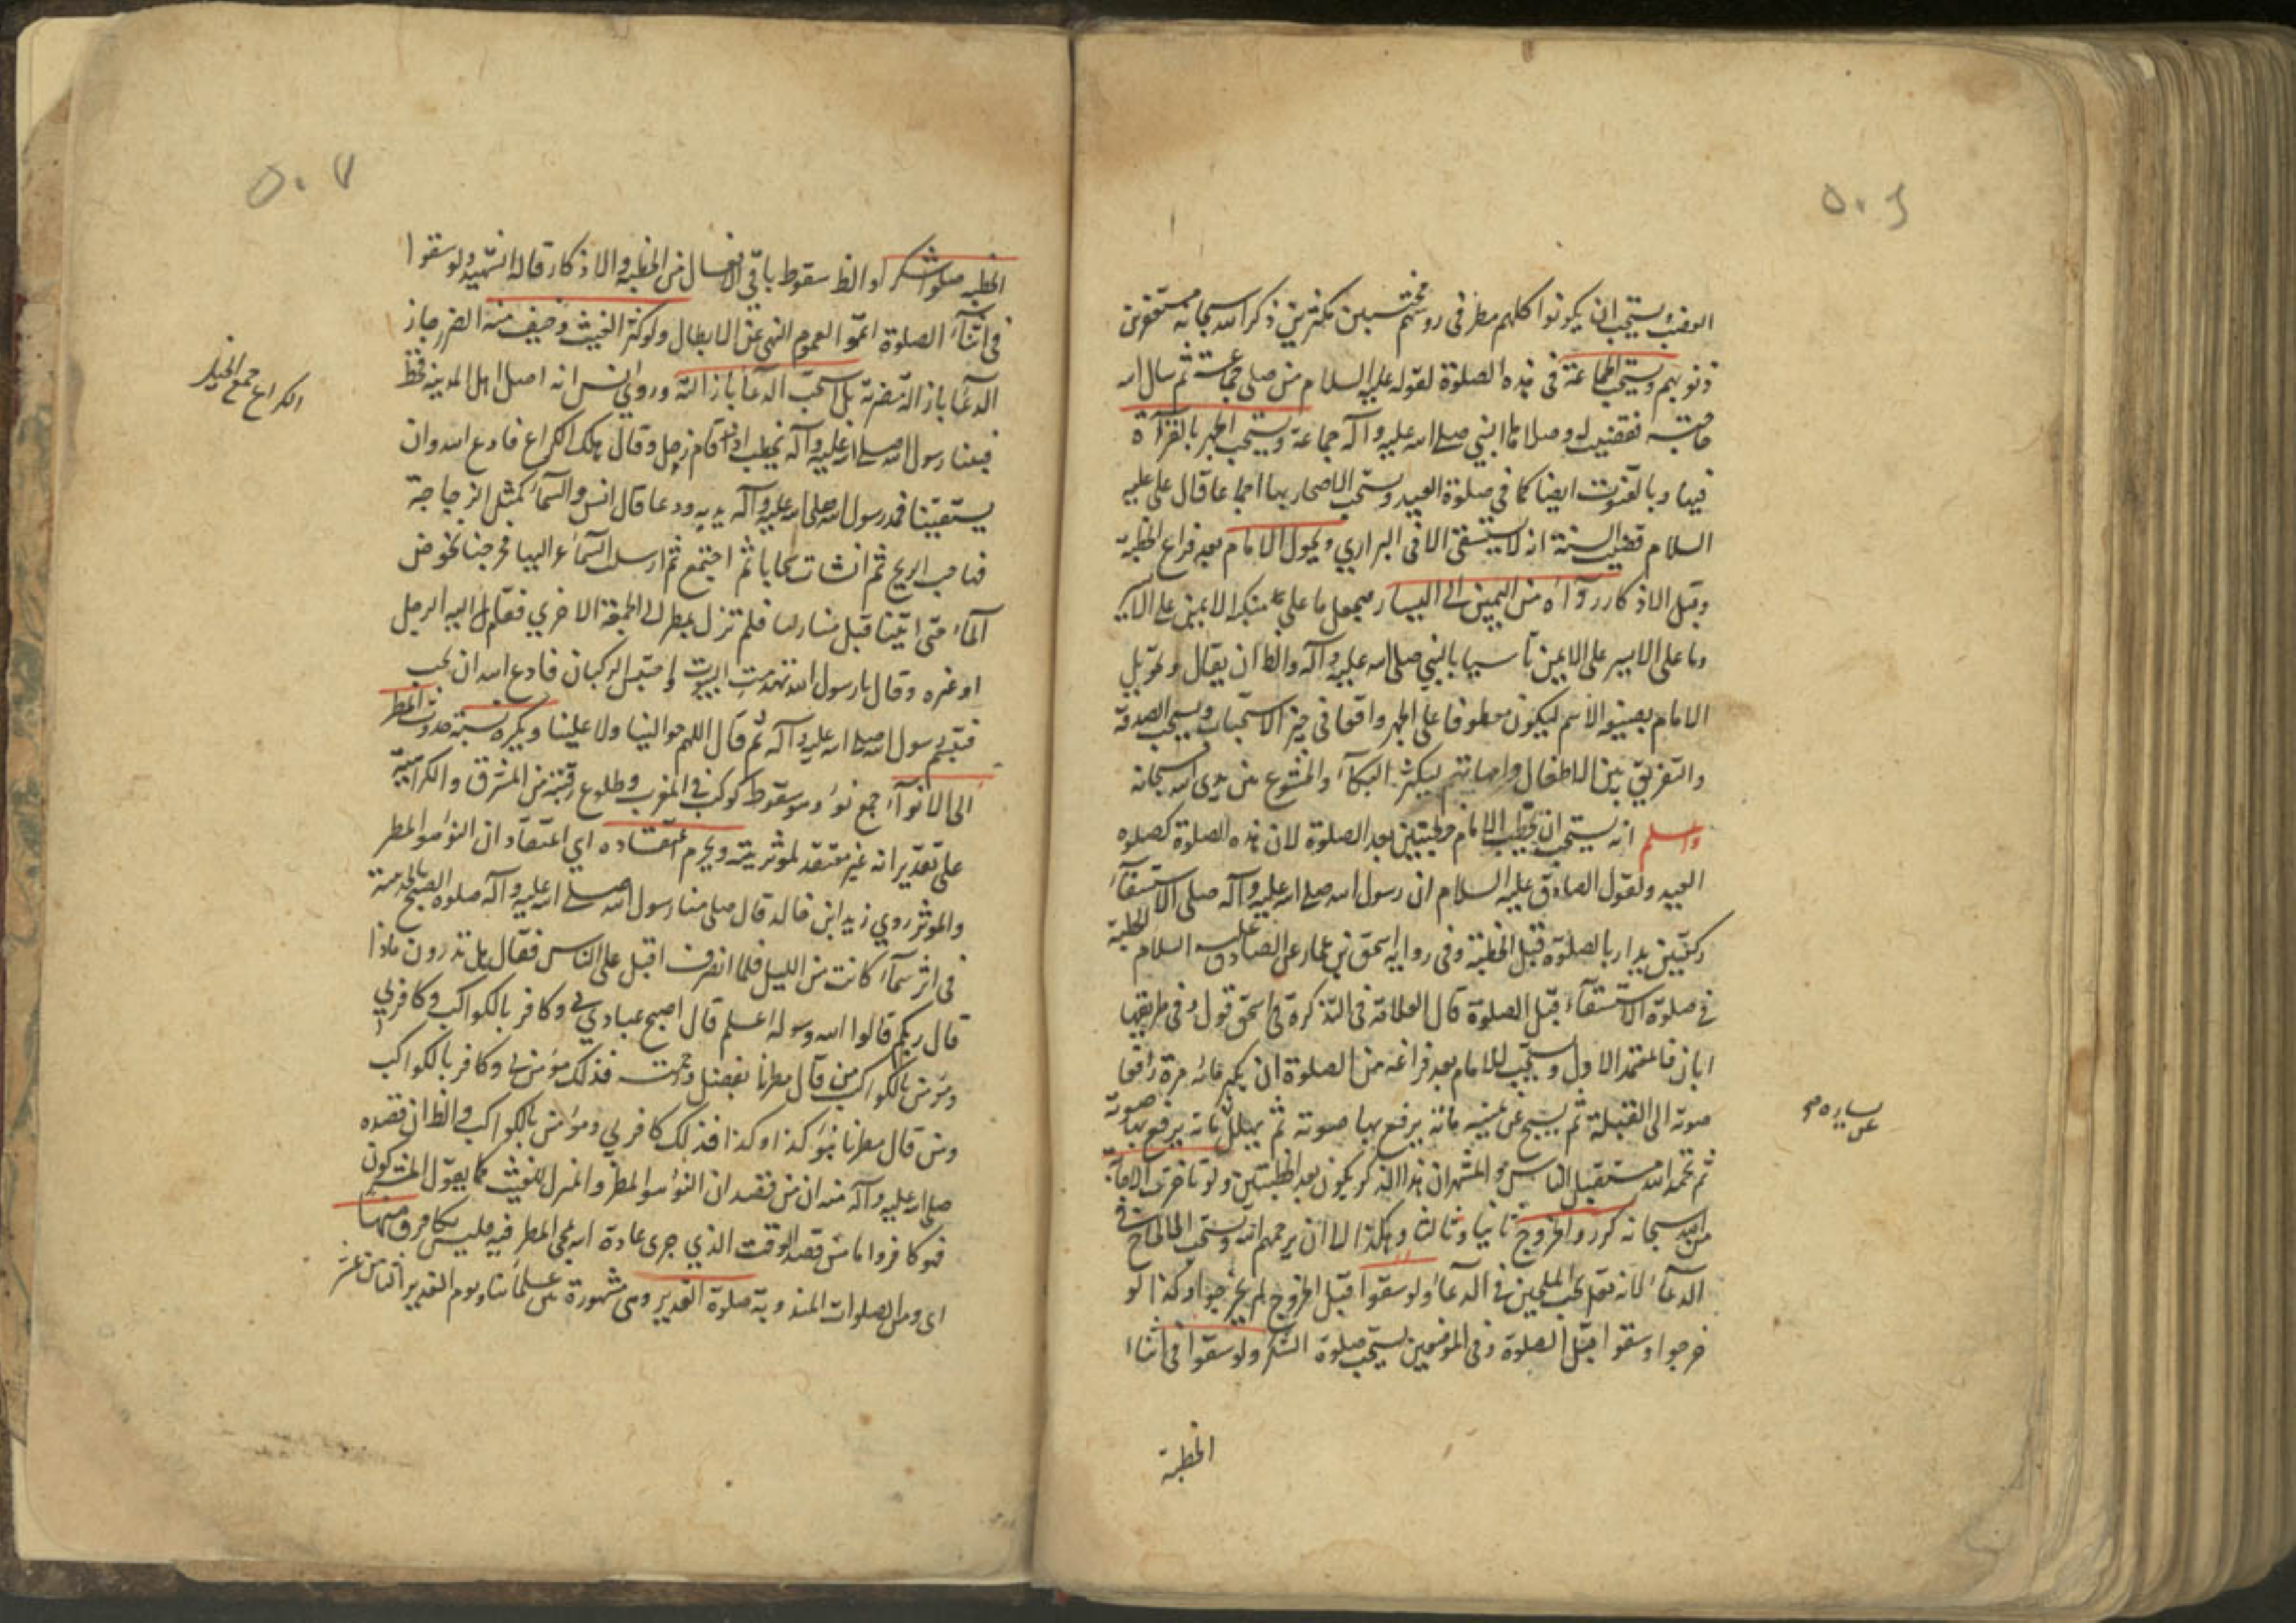 ٥٠٦
الغضب ويستحب ان يكونوا كلهم مطرقى رؤسهم مخبتين مكثرين ذكر الله سبحانه مستغفرين
ذنوبهم ويستحب الجماعة فى هذه الصلوة لقوله عليه السلام من صلى جماعة ثم سال الله
حاجته قضيت له وصلاها النبي صلى الله عليه وآله جماعة ويستحب الجهر بالقراءة
فيها وبالقنوت ايضا كما في صلوة العيد ويستحب الاصحار بها اجماعا قال على عليه
السلام مضت السنة انه لا يستسقى الا فى البراري ويحول الامام بعد فراغ الخطبة
وقبل الاذكار رداءه من اليمين الى اليسار فيجعل ما على منكبه الايمن على الايسر
وما على الايسر على الايمن تأسيا بالنبي صلى الله عليه وآله والظ ان يقال وتحويل
الامام بصيغة الاسم ليكون معطوفا على الجهر واقعا في حيز الاستحباب ويستحب الصدقة
والتفريق بين الاطفال وامهاتهم ليكثر البكاء والخشوع بين يدى الله سبحانه
واعلم انه يستحب ان يخطب الامام خطبتين بعد الصلوة لان هذه الصلوة كصلوه
العيد ولقول الصادق عليه السلام ان رسول الله صلى الله عليه وآله صلى الاستسقاء
ركعتين بدا بالصلوة قبل الخطبة وفى رواية اسحق بن عمار عن الصادق عليه السلام الخطبة
في صلوة الاستسقاء قبل الصلوة قال العلامة فى التذكرة في اسحق قول وفى طريقها
ابان فالمعتمد الاول ويستحب للامام بعد فراغه من الصلوة ان يكبر مائه مرة رافعا
صوته الى القبلة ثم يسبح عن يمينه مائة يرفع بها صوته ثم يهلل مائة يرفع بها صوته
عن يساره صح
ثم يحمد الله مستقبل الناس والمشهور ان هذا الذكر يكون بعد الخطبتين ولو تاخرت الاجابة
من الله سبحانه كرروا الخروج ثانيا وثالثا وهكذا الا ان يرحمهم الله ويستحب الالحاح في
الدعاء لانه تعالى يحب الملحين في الدعاء ولو سقوا قبل الخروج لم يخرجوا وكذا لو
خرجوا وسقوا قبل الصلوة وفى الموضعين يستحب صلوة الشكر ولو سقوا في اثناء
الخطبة
٥٠٧
الخطبة صلوا شكرا والظ سقوط باقي الافعال من الخطبة والاذكار قاله الشهيد ولو سقوا
فى اثناء الصلوة اتموا لعموم النهى عن الابطال ولو كثر الغيث وخيف منه الضرر جاز
الدعاء بازالة مضرته بل استحب الدعاء بازالته وروى انس انه اصاب اهل المدينة قحط
فبينا رسول الله صلى الله عليه وآله يخطب اذ قام رجل وقال هلك الكراع فادع الله وان
الكراع جمع الخيل
يسقينا فمد رسول الله صلى الله عليه وآله يديه ودعا قال انس والسماء كمثل الزجاجة
فهاجت الريح ثم انشات سحابا ثم اجتمع ثم ارسلت السماء عزاليها فخرجنا نخوض
الماء حتى اتينا منازلنا فلم تزل تمطر الى الجمعة الاخرى فقام اليه الرجل
او غيره وقال يا رسول الله تهدمت البيوت واحتبس الركبان فادع الله ان يحبسه
فتبسم رسول الله صلى الله عليه وآله ثم قال اللهم حوالينا ولا علينا ويكره نسبة حدوث المطر
الى الانواء جمع نوء وهو سقوط كوكب في المغرب وطلوع رقيبه من المشرق والكراهية
على تقدير انه غير معتقد لموثريته ويحرم اعتقاده اي اعتقاد ان النوء هو الممطر
والموثر روي زيد ابن خالد قال صلى بنا رسول الله صلى الله عليه وآله صلوة الصبح بالحديبية
فى اثر سماء كانت من الليل فلما انصرف اقبل على الناس فقال هل تدرون ماذا
قال ربكم قالوا الله ورسوله اعلم قال اصبح عبادي بي وكافر بالكواكب وكافر بي
ومؤمن بالكواكب من قال مطرنا بفضل الله ورحمته فذلك مؤمن بي وكافر بالكواكب
ومن قال مطرنا بنوء كذا وكذا فذلك كافر بي ومؤمن بالكواكب والظ ان قصده
صلى الله عليه وآله منه ان من قصد ان النوء هو الممطر والمنزل للغيث كما يقول المشركون
فهو كافر واما من قصد الوقت الذي جرى عادة الله بمجئ المطر فيه فليس بكافر ومنها
اى ومن الصلوات المندوبة صلوة الغدير وهى مشهورة بين علمائنا ويوم الغدير الثامن عشر